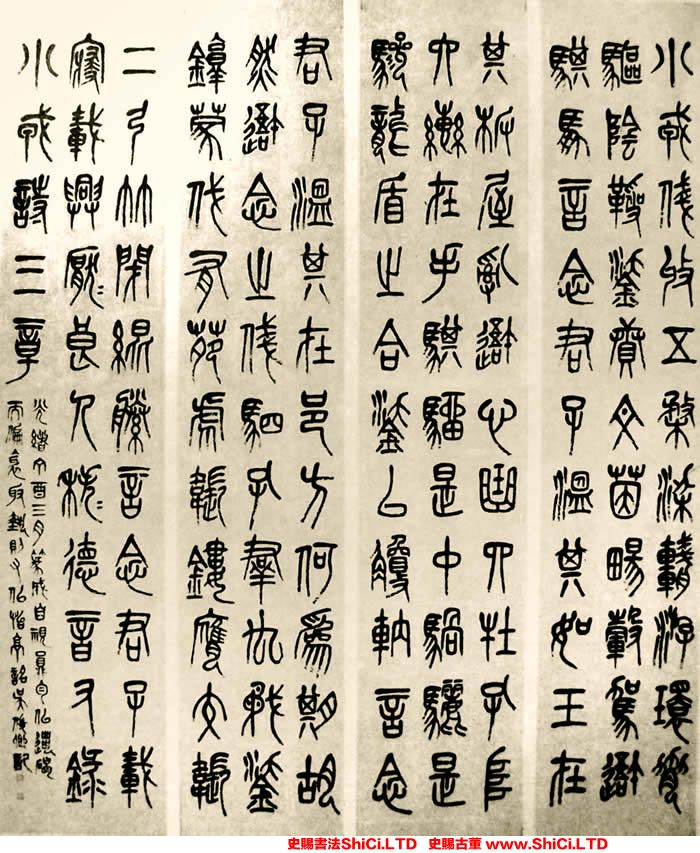 小戎俴收五楘梁輈游環脅
驅陰靷鋈續文茵暢轂駕我
騏馵言念君子溫其如玉在
其板屋亂我心曲四牡孔阜
四轡在手騏駵是中騧驪是
驂龍盾之合鋈以觼軜言念
君子溫其在邑方何為期胡
然我念之俴駟孔群厹矛鋈
錞蒙伐有苑虎韔鏤膺交韔
二弓竹閉緄縢言念君子載
寢載興厭=良人秩=德音
小戎詩三章
光緒丁酉三月篆成自視
吳俊卿記
史賜書法ShiCi.LTD 史賜古董 www.ShiCi.LTD